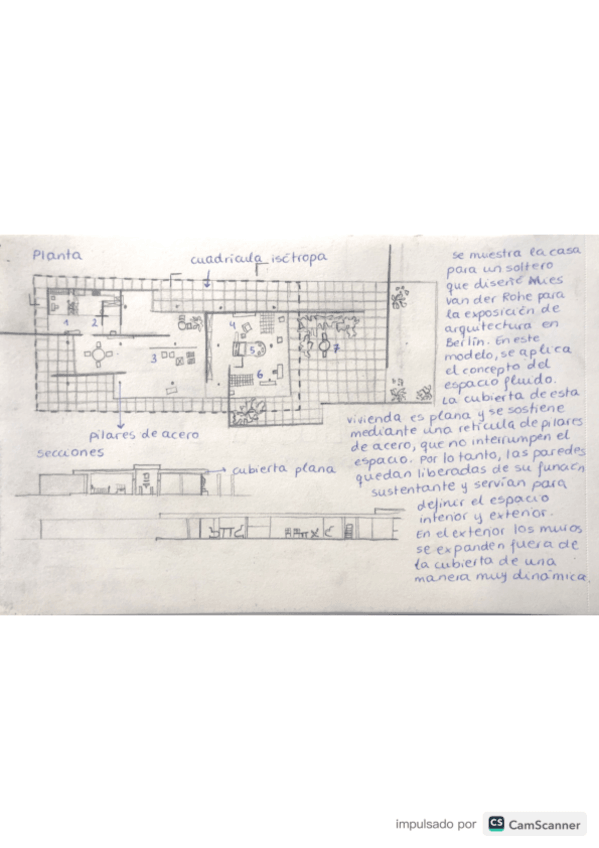 Planta
cuadricula isótropa
1
2
3
4
5
6
7
pilares de acero
secciones
cubierta plana
se muestra la casa
para un soltero
que diseñó Mies
van der Rohe para
la exposición de
arquitectura en
Berlín. En este
modelo, se aplica
el concepto del
espacio fluido.
La cubierta de esta
vivienda es plana y se sostiene
mediante una retícula de pilares
de acero, que no interrumpen el
espacio. Por lo tanto, las paredes
quedan liberadas de su función
sustentante y servían para
definir el espacio
interior y exterior.
En el exterior los muros
se expanden fuera de
la cubierta de una
manera muy dinámica.
impulsado por CS CamScanner